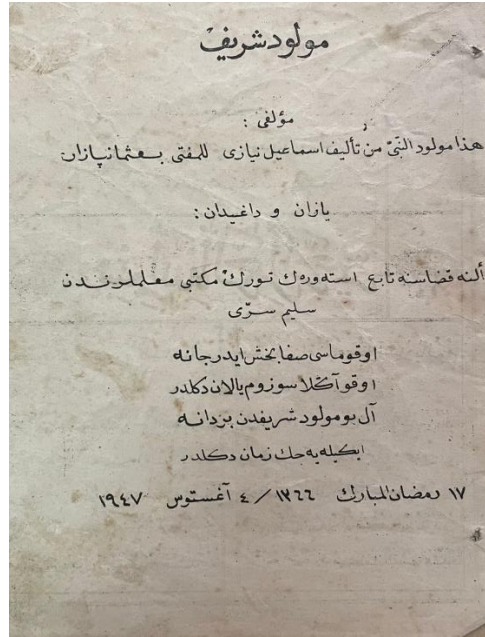 مولود شريف
مؤلفى :
هذا مولود النبىّ من تأليف اسماعيل نيازى للمفتى بـعثمانپازار
يازان و داغيدان :
ألنه قضاسنه تابع استه وره ك تورك مكتبى معلملرندن
سليم سرّى
اوقوماسى صفا بخش ايدر جانه
اوقو آكلا سوزوم يالان دكلدر
آل بو مولود شريفدن بردانه
ايكيله يه جك زمان دكلدر
١٧ رمضان المبارك ١٣٦٦ / ٤ آغستوس ١٩٤٧